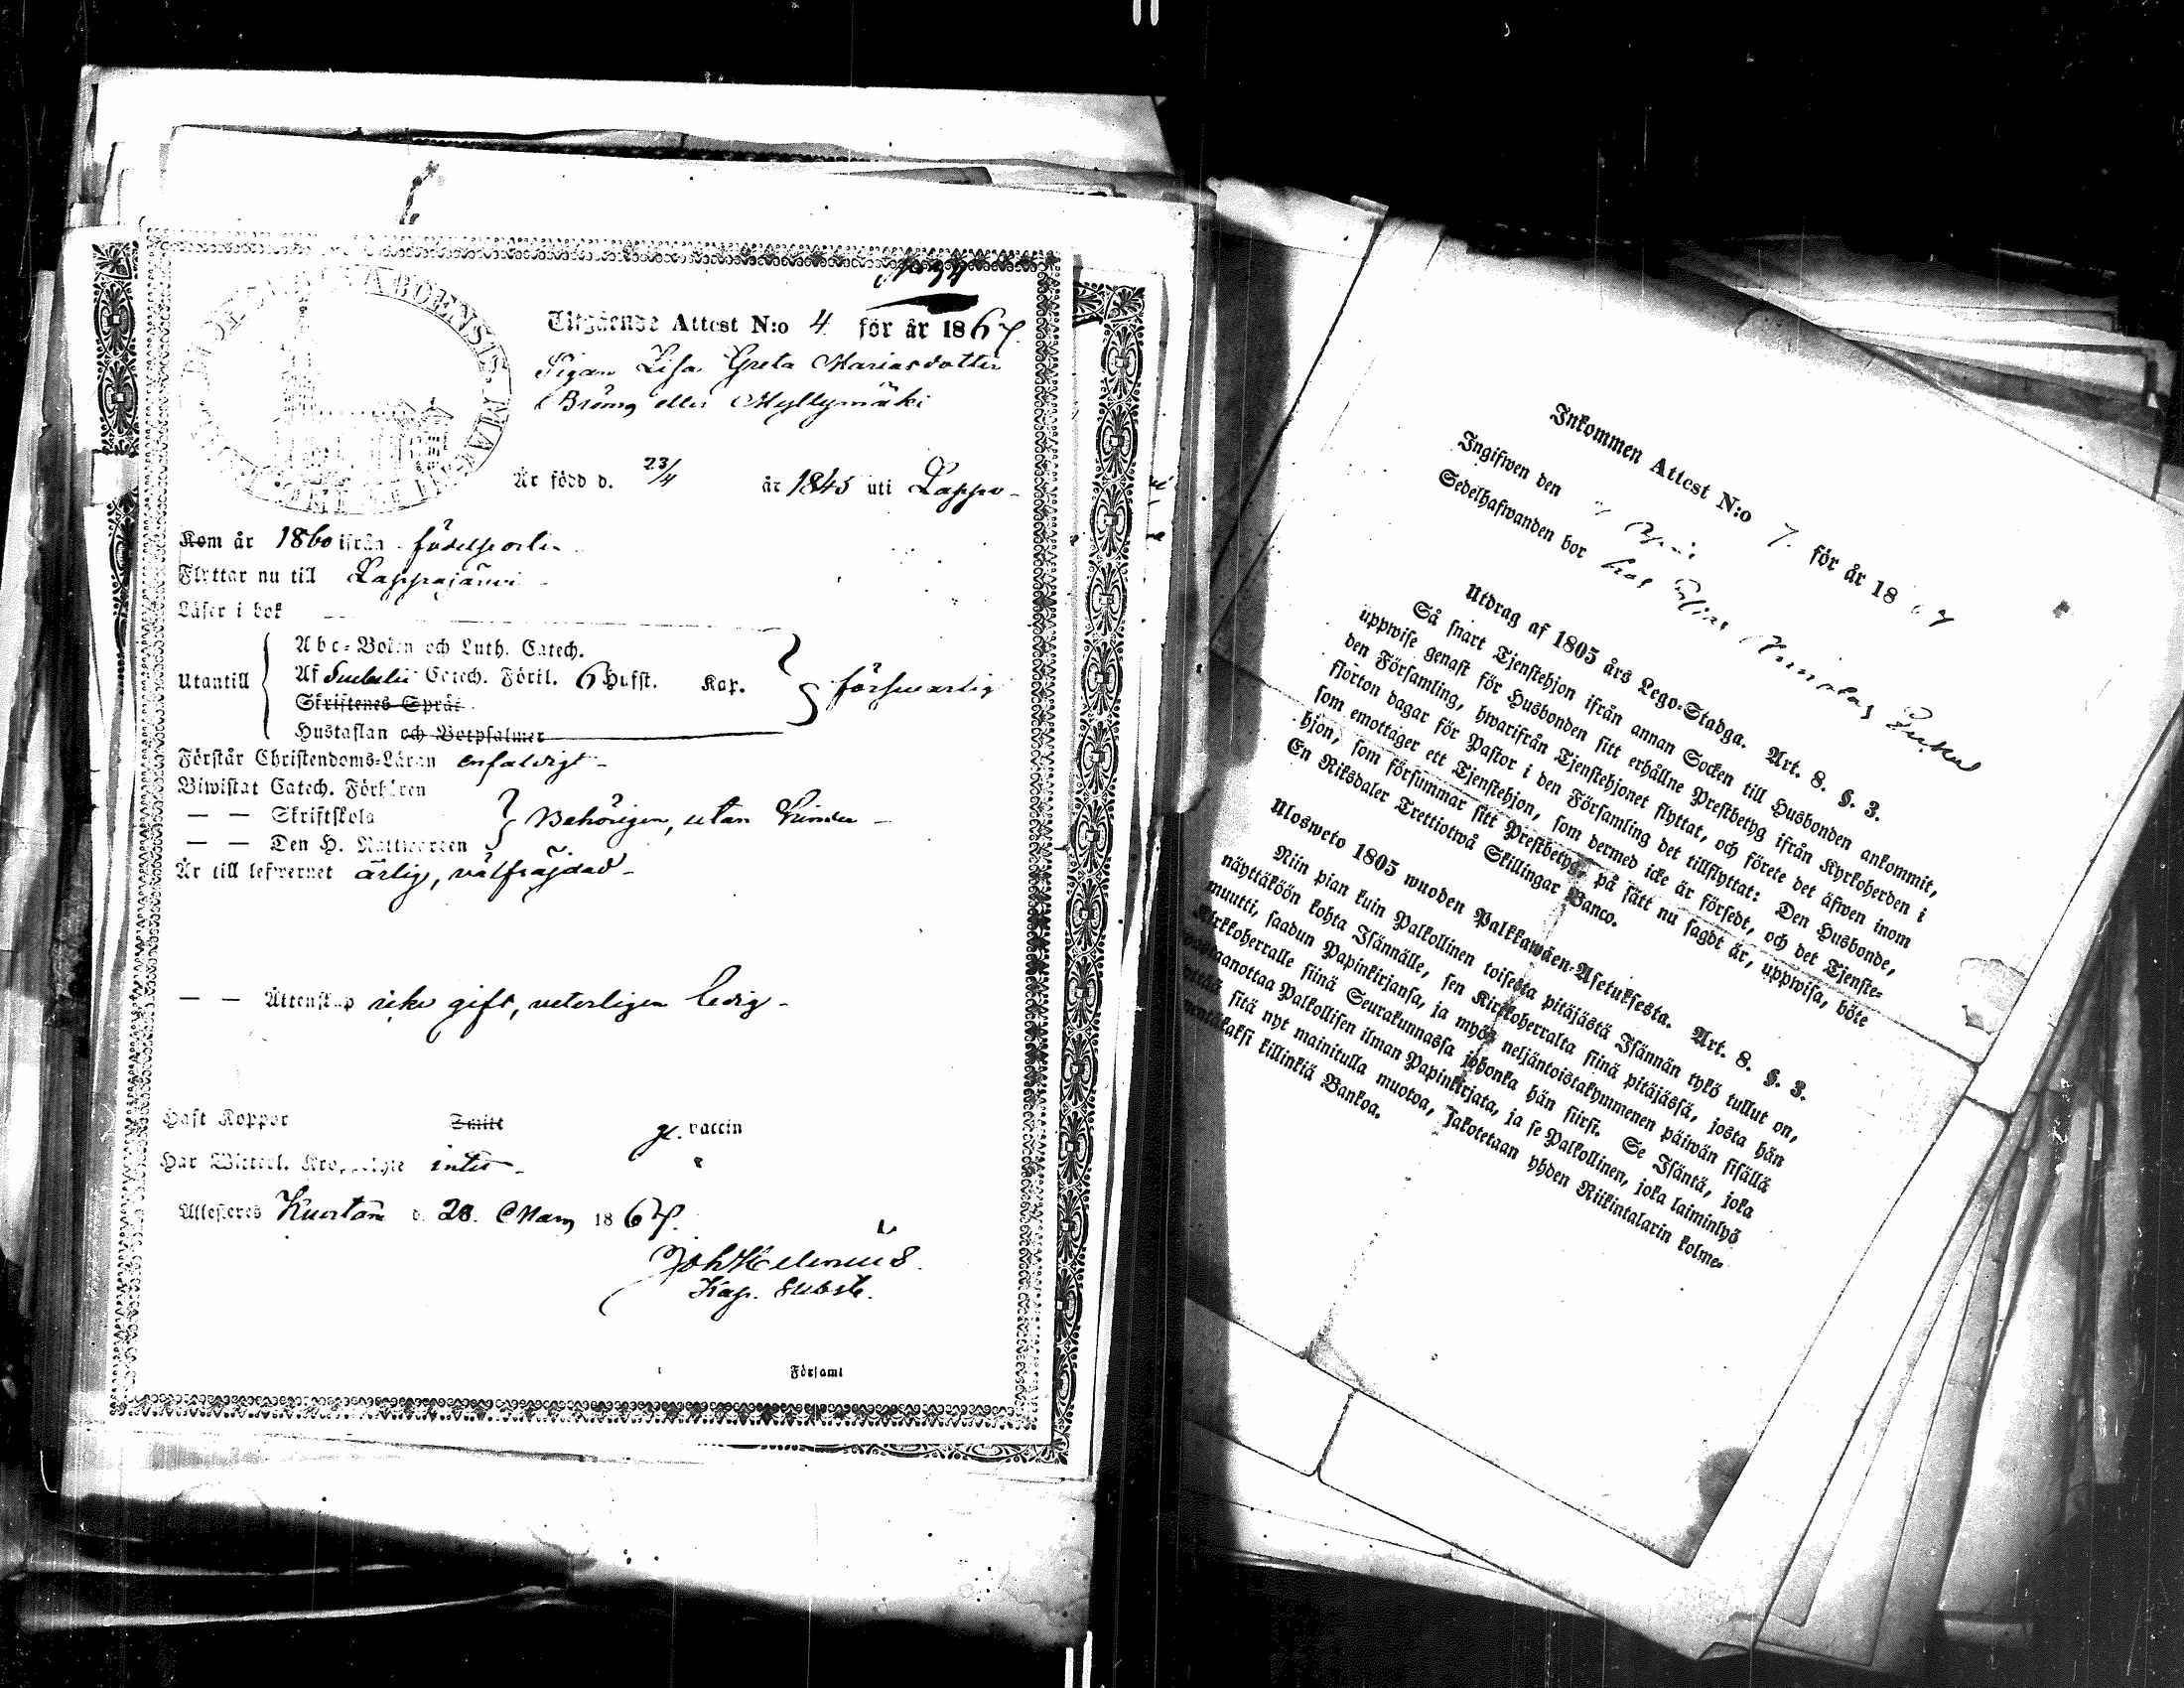 Utgående Attest N:o 4 för år 1867.
Pigan Lisa Greta Mariasdotter
Brúng eller Myllymäki
Är född d. 23/4 år 1845 uti Lappo
Kom år 1860 ifrån födelseorten
Flyttar nu till Lappajärvi
Läser i bok
Utantill
Abc-Boken och Luth. Catech.
Af Catech. Förkl. 6 Hufst. Kap.
försvarlig
Skriftenes Språk
Hustaflan och Botpsalmer
Förstår Christendoms-Läran enfaldigt
Biwistat Catech. Förhören
— — Skriftskola
Behörigen, utan hinder
— — Den H. Nattwarden
Är till lefwernet ärlig, välfrejdad
— — Ächtenskap icke gift, veterligen ledig
Haft Koppor Smitt gl. vaccin
Har Witterl. intet
Attesteras Kuortane d. 28. Mars 1867.
Joh Helenius
Kap. Subst.
Församl
Inkommen Attest N:o 7. för år 1867
Ingifwen den April
Sedelhafwanden bor hos
Utdrag af 1805 års Lego-Stadga. Art. 8. §. 3.
Så snart Tjenstehjon ifrån annan Socken till Husbonden ankommit,
uppwise genast för Husbonden sitt erhållne Prestbetyg ifrån Kyrkoherden i
den Församling, hwarifrån Tjenstehjonet flyttat, och förete det äfwen inom
fjorton dagar för Pastor i den Församling det tillflyttat: Den Husbonde,
som emottager ett Tjenstehjon, som dermed icke är försedt, och det Tjenste-
hjon, som försummar sitt Prestbetyg på sätt nu sagdt är, uppwisa, böte
En Riksdaler Trettiotwå Skillingar Banco.
Ulosweto 1805 wuoden Palkkawäen-Asetuksesta. Art. 8. §. 3.
Niin pian kuin Palkollinen toisesta pitäjästä Isännän tykö tullut on,
näyttäköön kohta Isännälle, sen Kirkkoherralta siinä pitäjässä, josta hän
muutti, saadun Papinkirjansa, ja myös neljäntoistakymmenen päiwän sisällä
Kirkkoherralle siinä Seurakunnassa johonka hän siirsi. Se Isäntä, joka
wastaanottaa Palkollisen ilman Papinkirjata, ja se Palkollinen, joka laiminlyö
sitä nyt mainitulla muotoa, sakotetaan yhden Riikintalarin kolme-
killinkiä Bankoa.